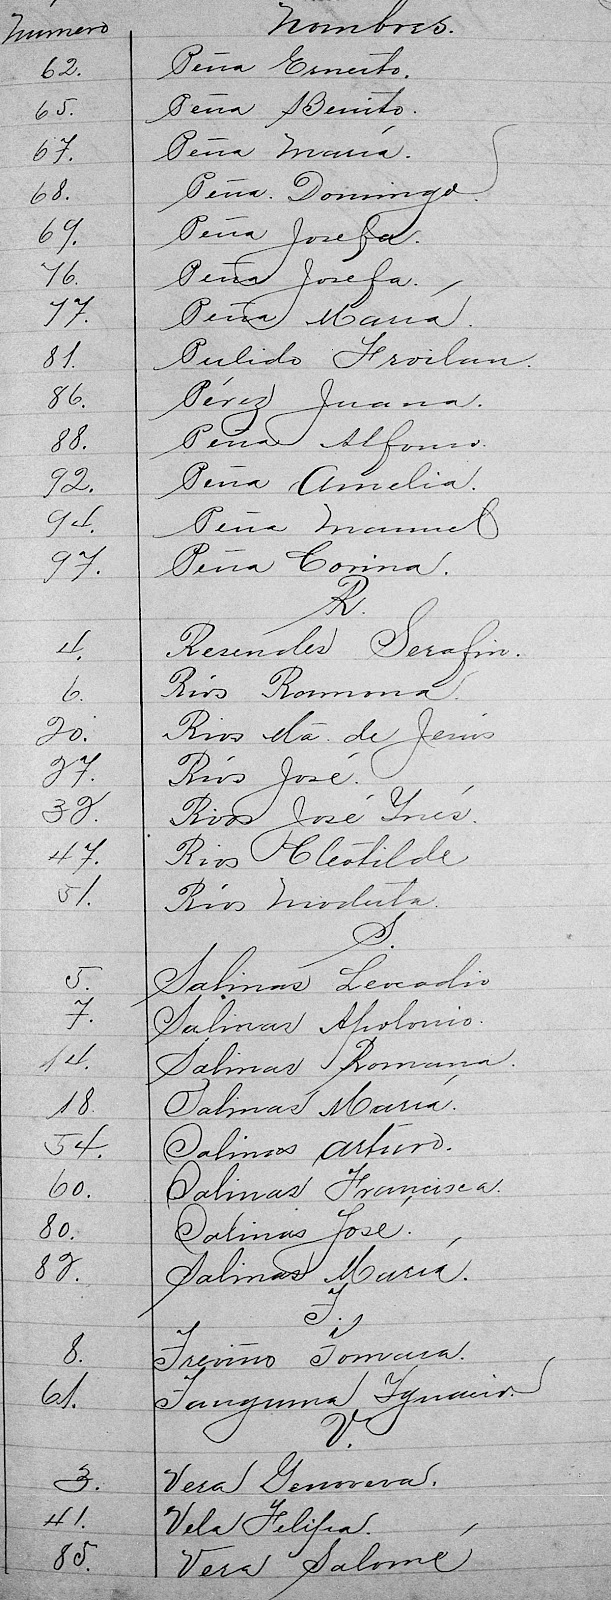 Número Nombres.
62. Peña Ernesto.
65. Peña Benito.
67. Peña María.
68. Peña. Domingo.
69. Peña Josefa.
76. Peña Josefa.
77. Peña María.
81. Pulido Froilan.
86. Pérez Juana.
88. Peña Alfonso.
92. Peña Amelia.
94. Peña Manuel
97. Peña Corina.
R.
4. Resendes Serafin.
6. Ríos Ramona.
20. Rios Ma. de Jesús
27. Ríos José.
32. Rios José Ynés.
47. Rios Cleotilde
51. Ríos Modesta.
S.
5. Salinas Leocadio
7. Salinas Apolonio.
14. Salinas Romana.
18. Salinas María.
54. Salinas Arturo.
60. Salinas Francisca.
80. Salinas José.
82. Salinas María.
T.
8. Treviño Tomasa.
61. Tanguma Ygnacio.
V.
3. Vera Genoveva.
41. Vela Felipa.
85. Vera Salomé